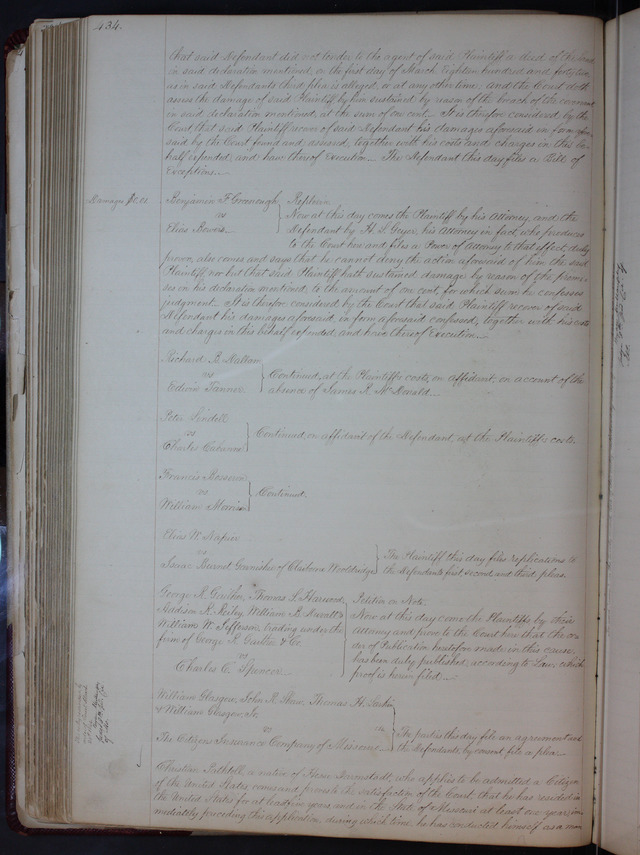 434.
that said Defendant did not tender to the agent of said Plaintiff a deed of the land
in said declaration mentioned, on the first day of March Eighteen hundred and forty
as in said Defendants third plea is alleged, or at any other time. and the Court doth
assess the damage of said Plaintiff by him sustained by reason of the breach of the covenant
in said declaration mentioned, at the sum of one cent. It is therefore considered by the
Court that said Plaintiff recover of said Defendant his damages aforesaid in form afore
said by the Court found and assessed, together with his costs and charges in this be
half expended, and have thereof Execution. The Defendant this day files a Bill of
Exceptions.
Damages $0.01
Benjamin F. Greenough
vs
Elias Bowers
Replevin
Now at this day comes the Plaintiff by his Attorney, and the
Defendant by H. S. Geyer, his Attorney in fact, who produces
to the Court here and files a Power of Attorney to that effect, duly
proven, also comes and says that he cannot deny the action aforesaid of him the said
Plaintiff, nor but that said Plaintiff hath sustained damage by reason of the premi
ses in his declaration mentioned, to the amount of one cent, for which sum he confesses
judgment. It is therefore considered by the Court that said Plaintiff recover of said
Defendant his damages aforesaid, in form aforesaid confessed, together with his costs
and charges in this behalf expended, and have thereof Execution.
Richard B. Dallam
vs
Edwin Tanner
Continued, at the Plaintiffs costs, on affidavit, on account of the
absence of James R. McDonald.
Peter Lindell
vs
Charles
Continued, on affidavit of the Defendant, at the Plaintiffs costs
Francis
vs
William Morrison
Continued.
Elias W. Napier
vs
Isaac Barnet Garnishee of Claiborne Wooldridge
The Plaintiff this day files replications to
the Defendants first, second and third pleas.
George R. Gaither, Thomas S. Harwood,
Addison K. William R.
William W. Jefferson, trading under the
firm of George R. Gaither & Co.
vs
Charles C. Spencer
Petition on Note.
Now at this day come the Plaintiffs by their
Attorney and prove to the Court here that the or
der of Publication heretofore made in this cause
has been duly published, according to Law; which
proof is herein filed.
William Glasgow, John R. Shaw, Thomas H. Larkin
& William Glasgow, Jr.
vs
The Citizens Insurance Company of Missouri
The parties this day file an agreement and
the Defendants, by consent, file a plea.
Christian a native of Hesse Darmstadt, who applies to be admitted a Citizen
of the United States, comes and proves to the satisfaction of the Court, that he has resided in
the United States for at least five years and in the State of Missouri at least one year, im
mediately preceding this application, during which time, he has conducted himself as a man